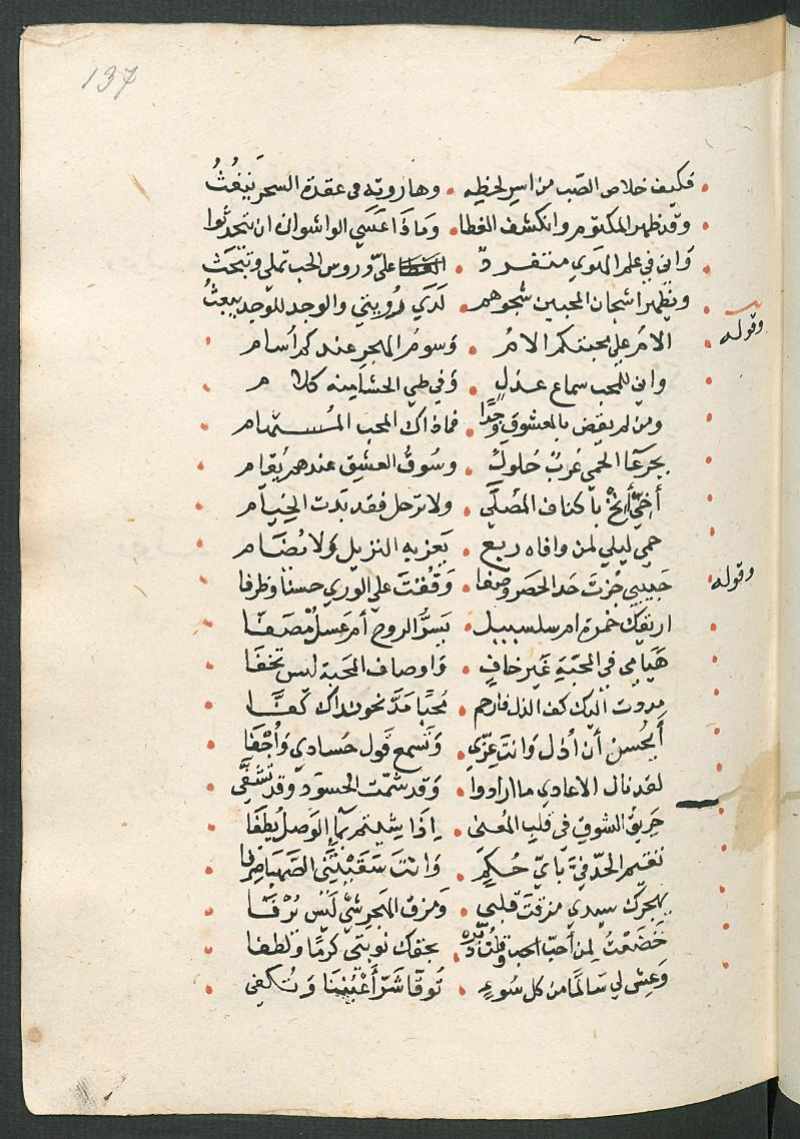 137
فكيف خلاص الصّب من اسر لحظه • وهاروته فى عقدة السحر ينفثُ
وقد ظهر المكتوم وانكشف الغطا • وماذا عَسَي الواشون ان يتحدثُوا
وَاني في علم الهَوي متفرد • على ودروس الحب تملى وتبحث
ويظهر اشجان المحبين شجوهم • لدَي رُويتي والوجد للوجد يبعثُ
وقوله
الامُ على محبتكم الامُ • وَسومُ الهجرِ عندكم اُسام
واني للمحب سماع عذلٍ • وَفي طي الحشا منه كلام
ومن لم يقض بالمعشوق وجدًا • فماذاك المحب المُستهام
بجرعَا الحمي عُربٌ حُلولٌ • وسُوقُ العشق عندهم يُقام
أخيَّ أنِخْ باكناف المصَلّي • ولا ترحل فقد بَدت الخيام
حمي ليلي لمن وافاه ربع • يَعز به النزيل ولا يُضَام
وقوله
حَبيبي حُزتَ حَد الحصر وصْفا • وَفُقتَ علي الوري حسنًا وظرفا
اريقك خمرة ام سلسبيل • يَسرُّ الروح أم عَسلٌ مُصَفّا
هَيامي في المحبّةِ غَير خافٍ • وَاوصاف المحَبة ليس تخفَا
مددت اليك كف الذل فارحم • مُحبًا مَدَّ نحو نداك كَفّا
أيحُسن أن أذل وَانتَ عِزّي • وَتسمع قَول حسادي وَأُجْفَا
لقد نال الاعادي ما ارادوا • وَقد شمّت الحسود وقد تشَفَّي
حَريق الشوق في قلب المُعنى • اذا شيتم بما الوَصل يُطفَا
تقيم الحدّ فيَّ بايّ حُكمٍ • وَانتَ سَقَيْتَني الصَّهبا صِرفا
بهجرك سيدي مزقتَ قلبي • وَمزق الهَجر شي لَيْس يُرْفَا
خَضَعْتُ لمن أحبّ الحب وقلت زره • بحقك نوبتي كرمًا ولطفا
وَعِش لي سَالمًا من كل سُوءٍ • تُوقَا شَرّ أَعْيُننَا وَتُكفى